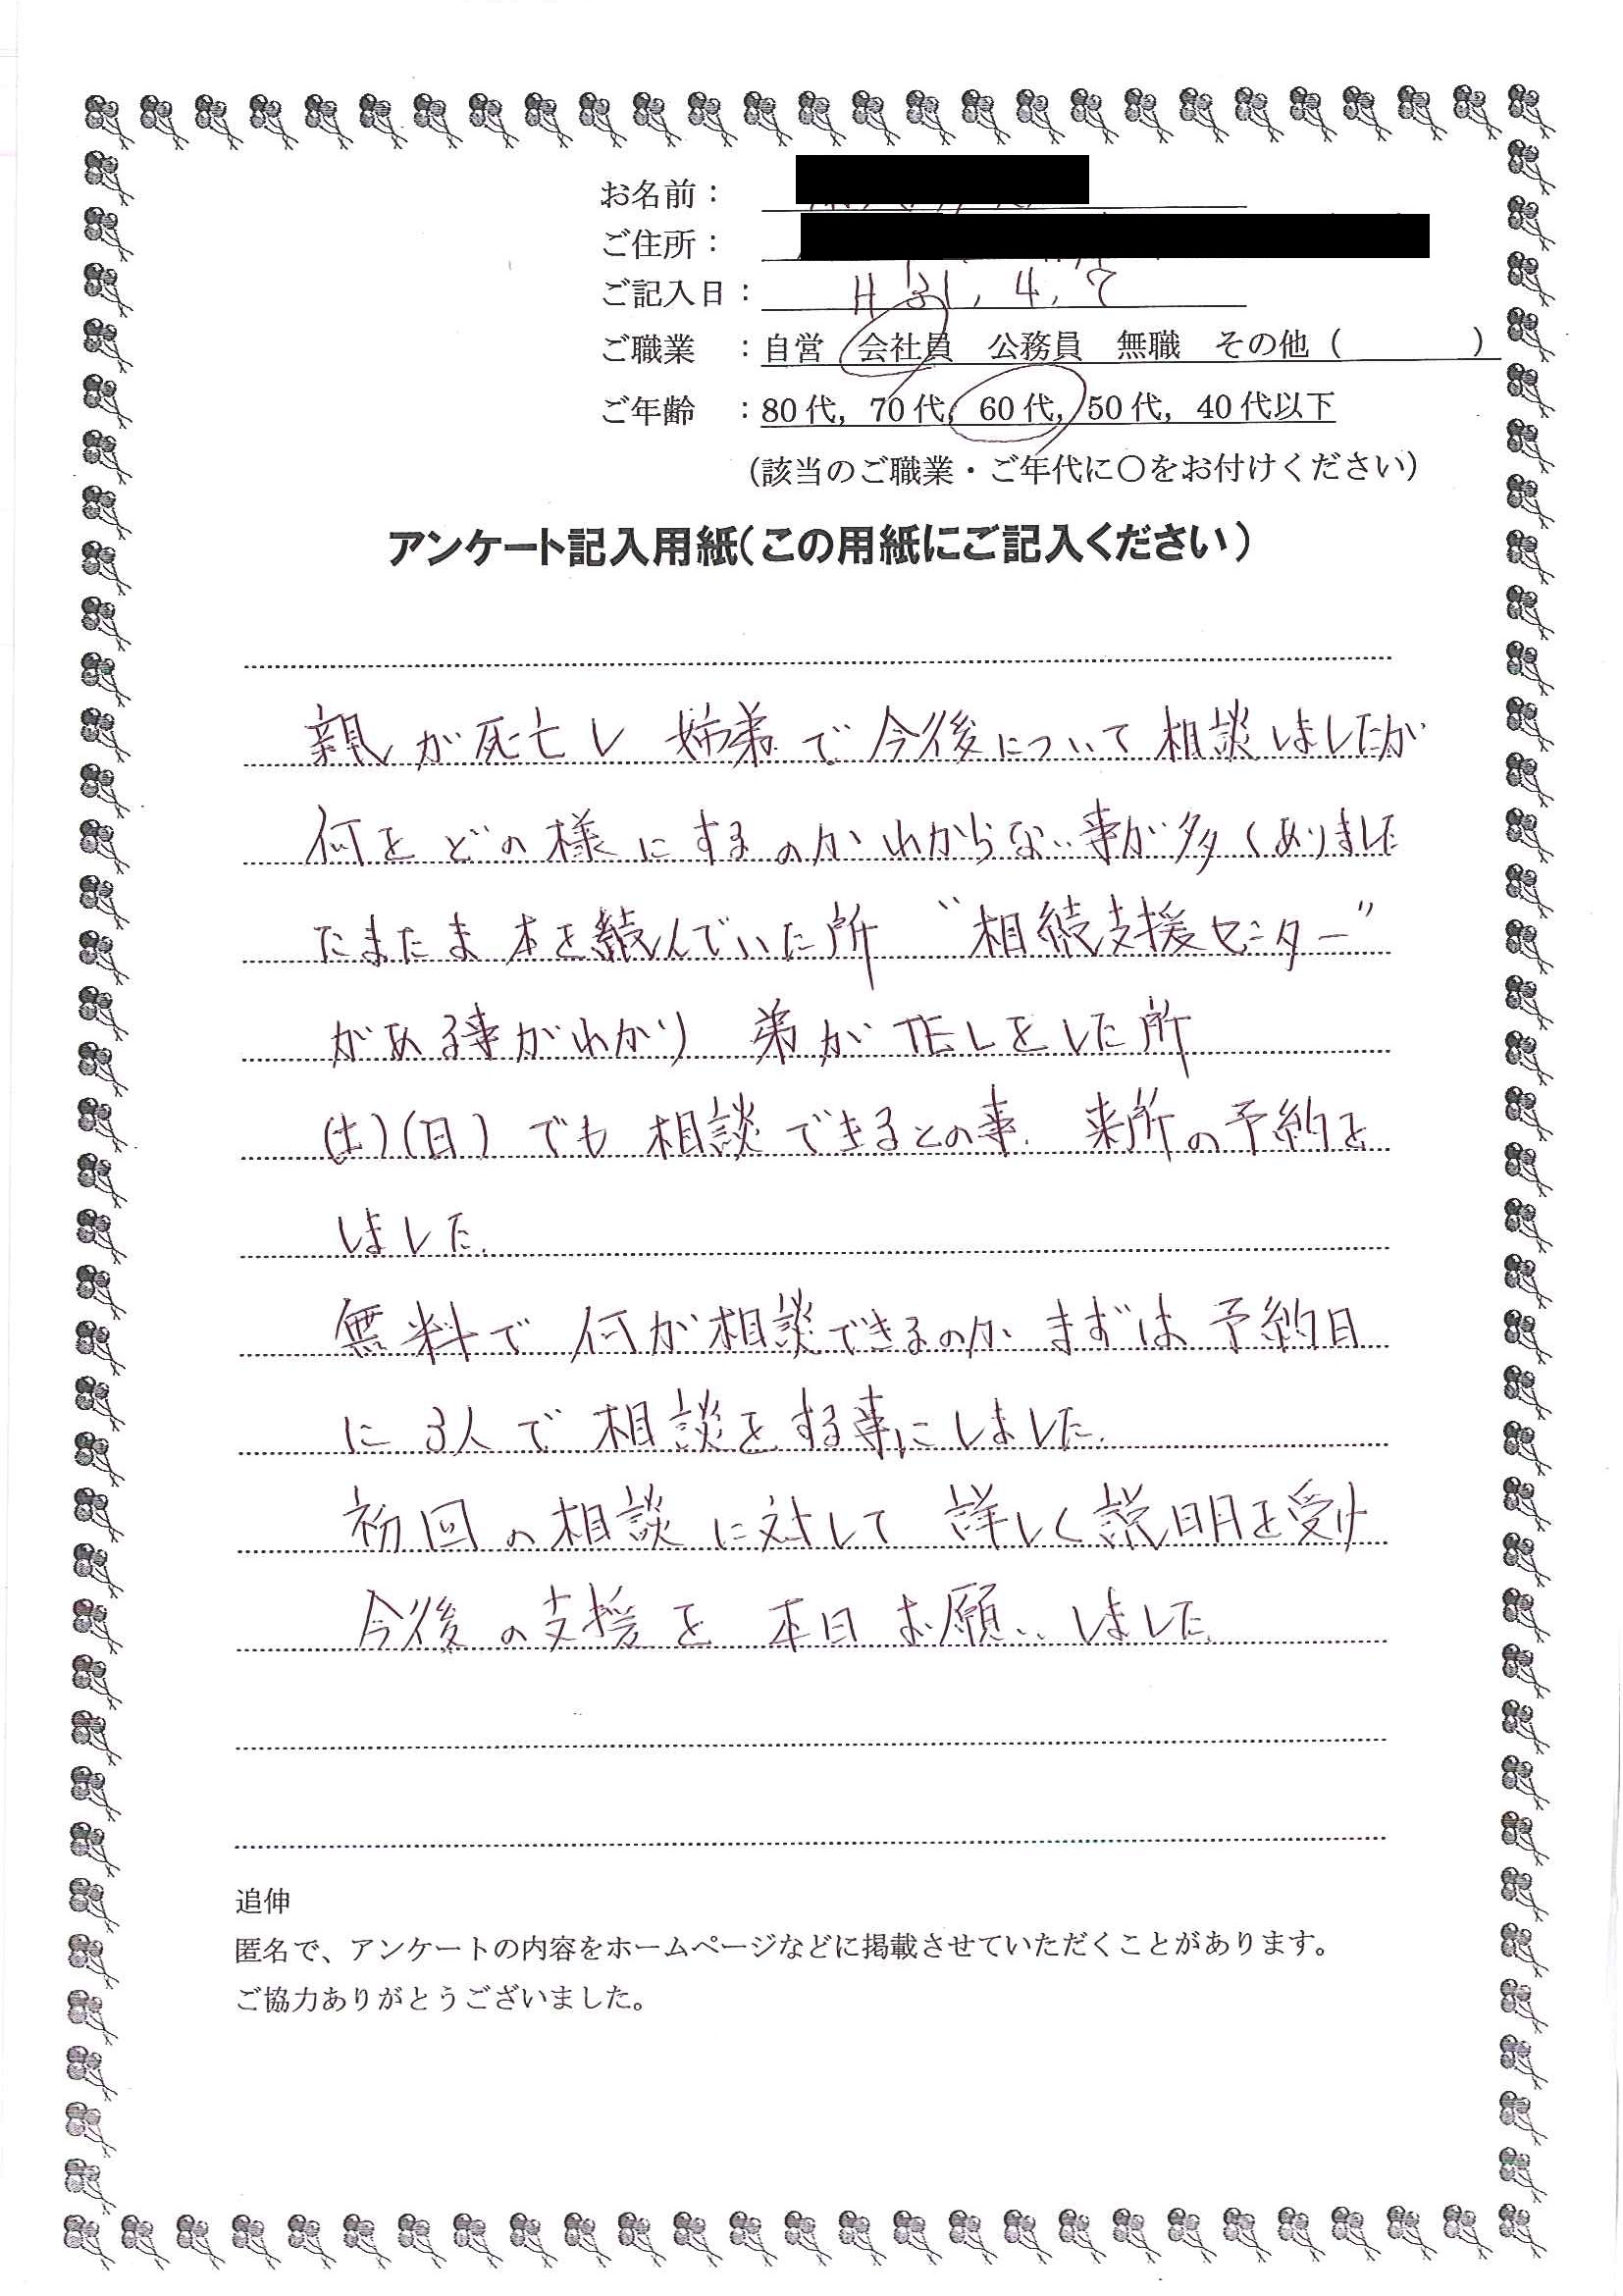 お名前：
ご住所：
ご記入日： H31, 4, 7
ご職業 ：自営 会社員 公務員 無職 その他（ ）
ご年齢 ：80代, 70代, 60代, 50代, 40代以下
（該当のご職業・ご年代に〇をお付けください）
アンケート記入用紙（この用紙にご記入ください）
親が死亡し 姉弟で今後について相談しましたが
何をどの様にするのかわからない事が多くありました
たまたま本を続んでいた所 “相続支援センター”
がある事がわかり 弟がTELをした所
(土)(日) でも相談できるとの事. 来所の予約を
しました.
無料で何が相談できるのか まずは予約日
に3人で相談をする事にしました.
初回の相談に対して 詳しく説明を受け
今後の支援を 本日お願いしました.
追伸
匿名で、アンケートの内容をホームページなどに掲載させていただくことがあります。
ご協力ありがとうございました。